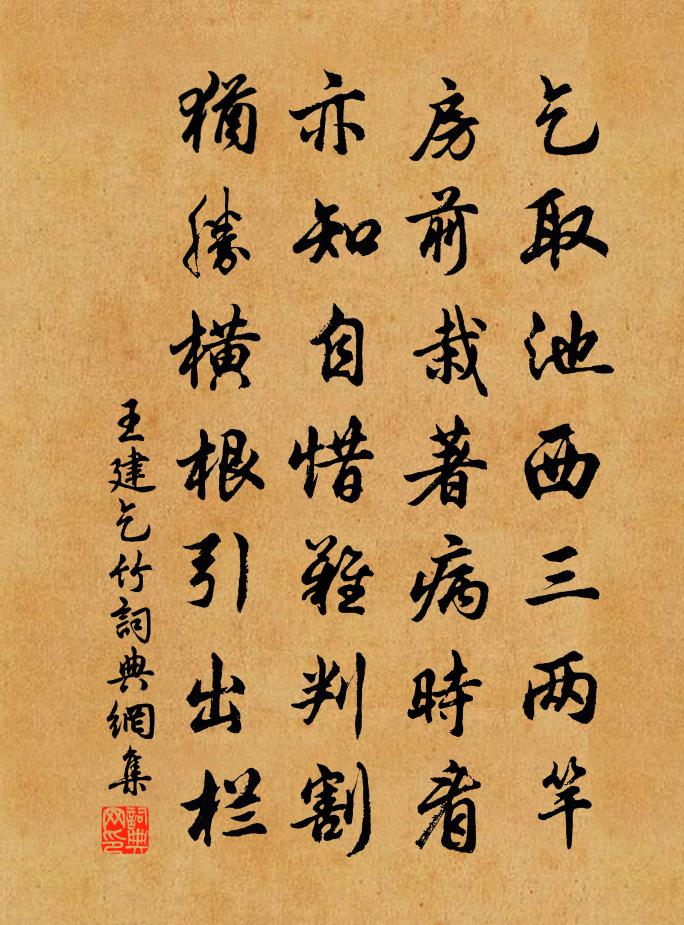 乞取池西三两竿
房前栽著病時看
亦知自惜難判割
猶勝橫根引出栏
王建乞竹詞典網集
詞典网印